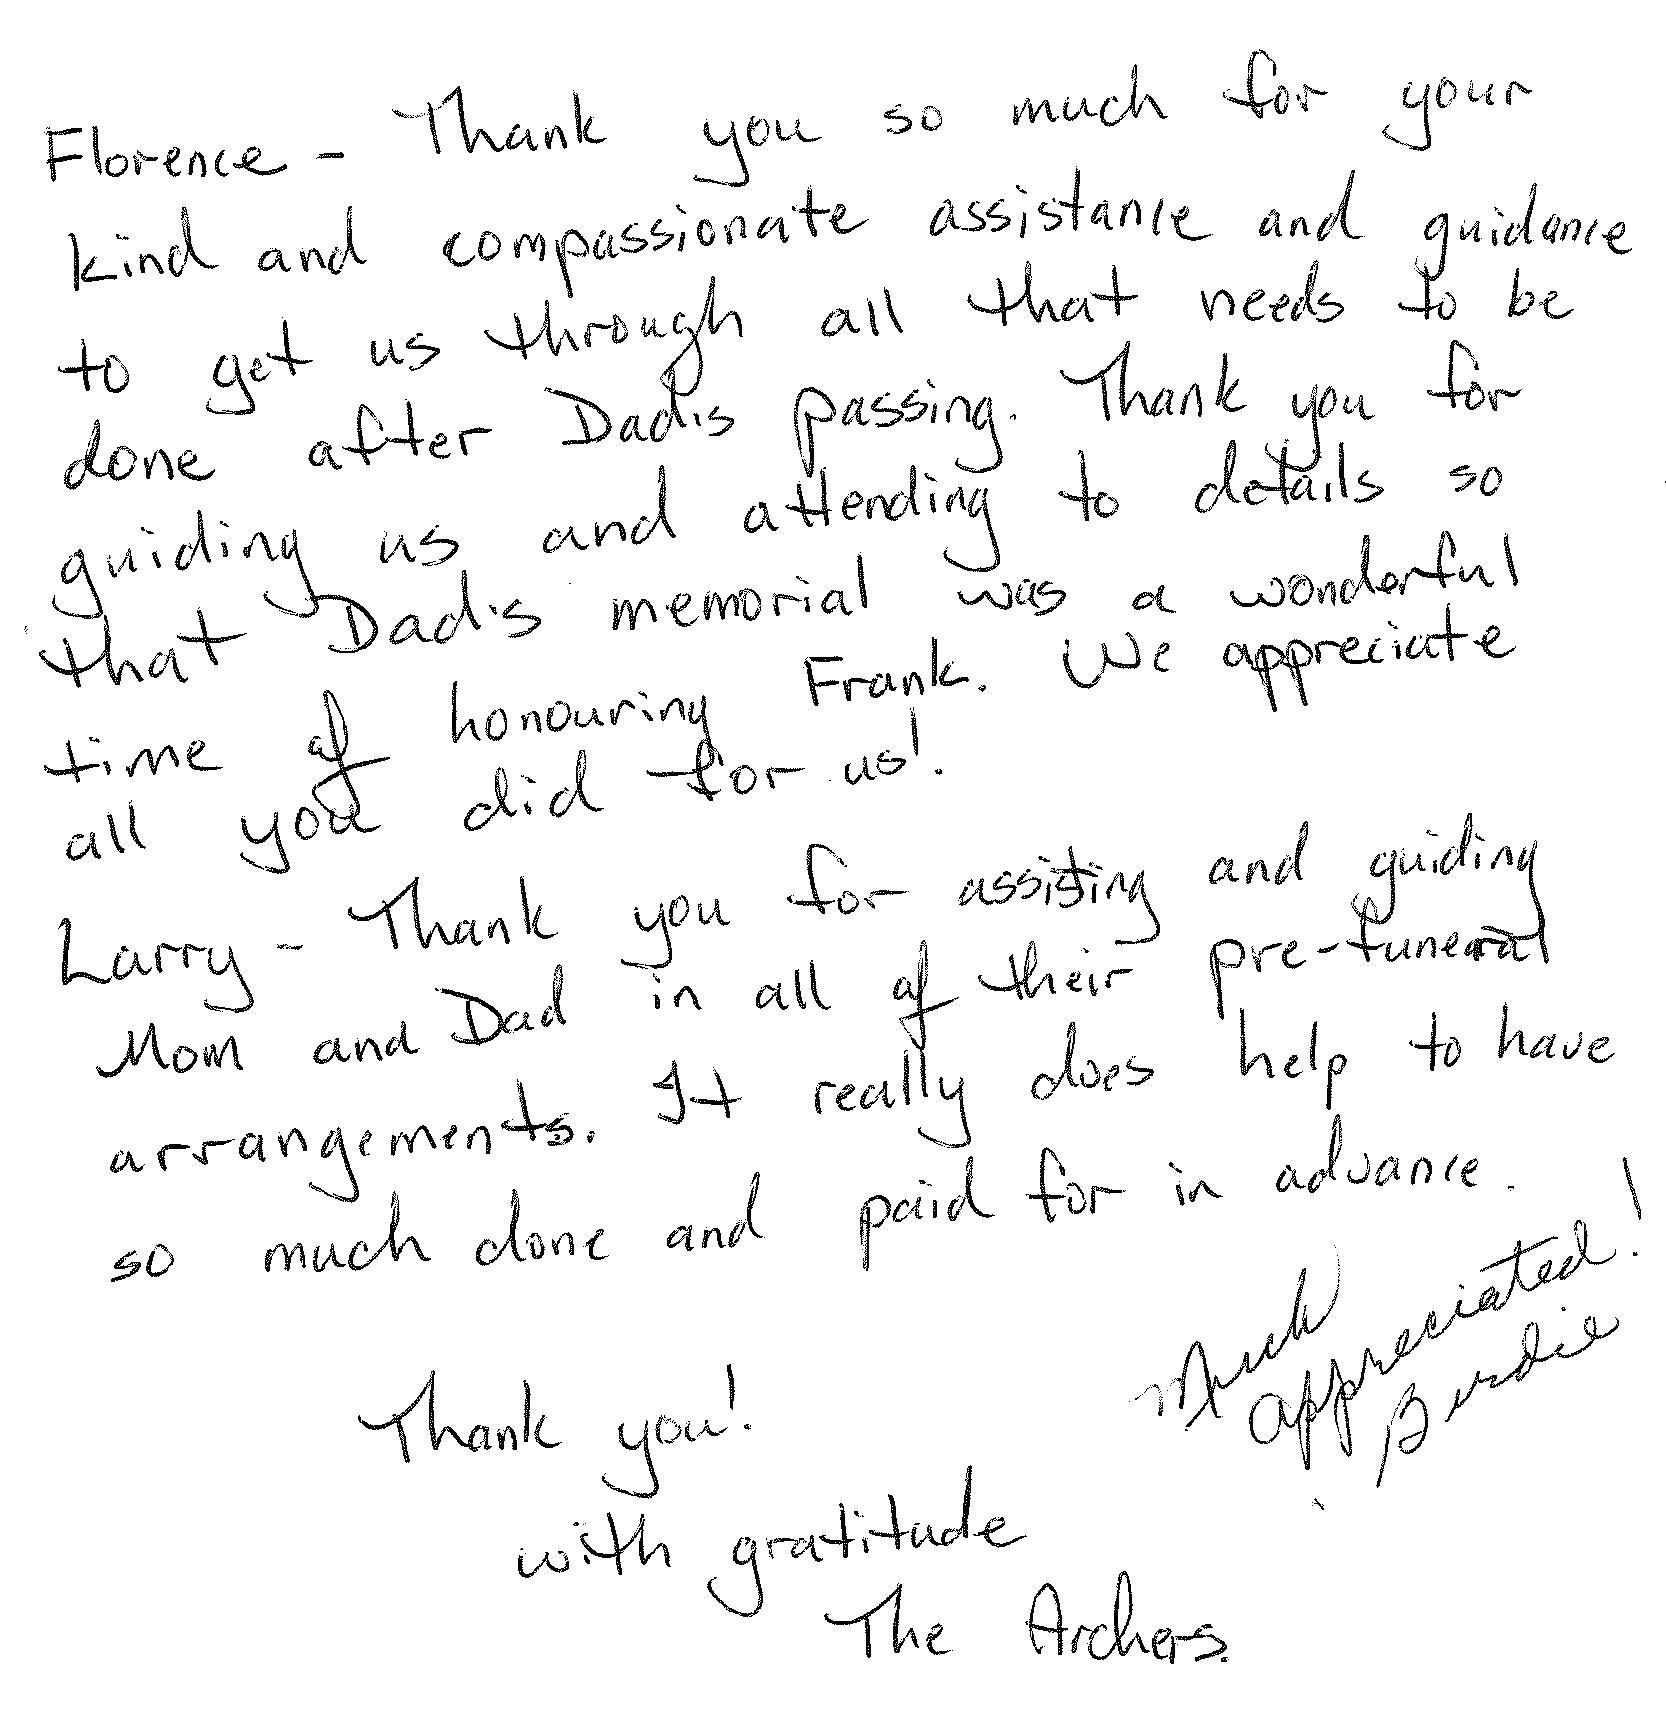 Florence - Thank you so much for your
kind and compassionate assistance and guidance
to get us through all that needs to be
done after Dad's passing. Thank you for
guiding us and attending to details so
that Dad's memorial was a wonderful
time of honouring Frank. We appreciate
all you did for us!
Larry - Thank you for assisting and guiding
Mom and Dad in all of their pre-funeral
arrangements. It really does help to have
so much done and paid for in advance.
Much
appreciated!
Burdie
Thank you!
with gratitude
The Archers.